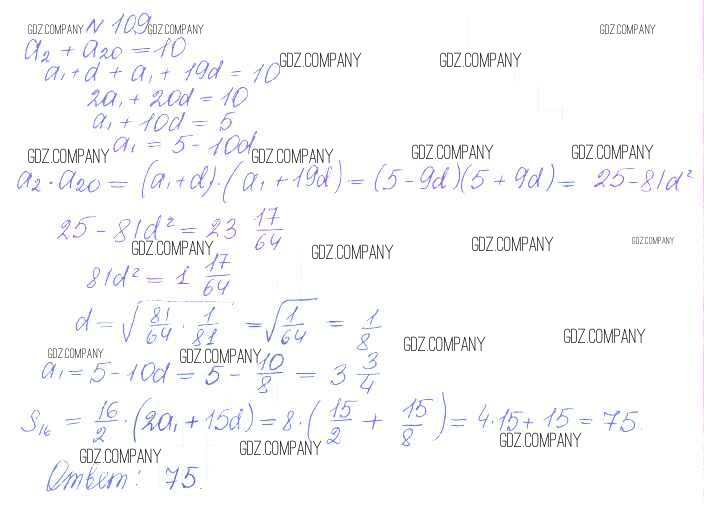 GDZ.COMPANY № 109 GDZ.COMPANY GDZ.COMPANY
a₂ + a₂₀ = 10
GDZ.COMPANY GDZ.COMPANY
a₁ + d + a₁ + 19d = 10
2a₁ + 20d = 10
a₁ + 10d = 5
a₁ = 5 - 10d
GDZ.COMPANY GDZ.COMPANY GDZ.COMPANY GDZ.COMPANY
a₂ · a₂₀ = (a₁ + d) · (a₁ + 19d) = (5 - 9d)(5 + 9d) = 25 - 81d²
25 - 81d² = 23 17/64
GDZ.COMPANY GDZ.COMPANY GDZ.COMPANY GDZ.COMPANY
81d² = 1 17/64
d = √(81/64 · 1/81) = √(1/64) = 1/8
GDZ.COMPANY GDZ.COMPANY GDZ.COMPANY GDZ.COMPANY
a₁ = 5 - 10d = 5 - 10/8 = 3 3/4
S₁₆ = 16/2 · (2a₁ + 15d) = 8 · (15/2 + 15/8) = 4·15 + 15 = 75.
GDZ.COMPANY GDZ.COMPANY GDZ.COMPANY
Ответ: 75.